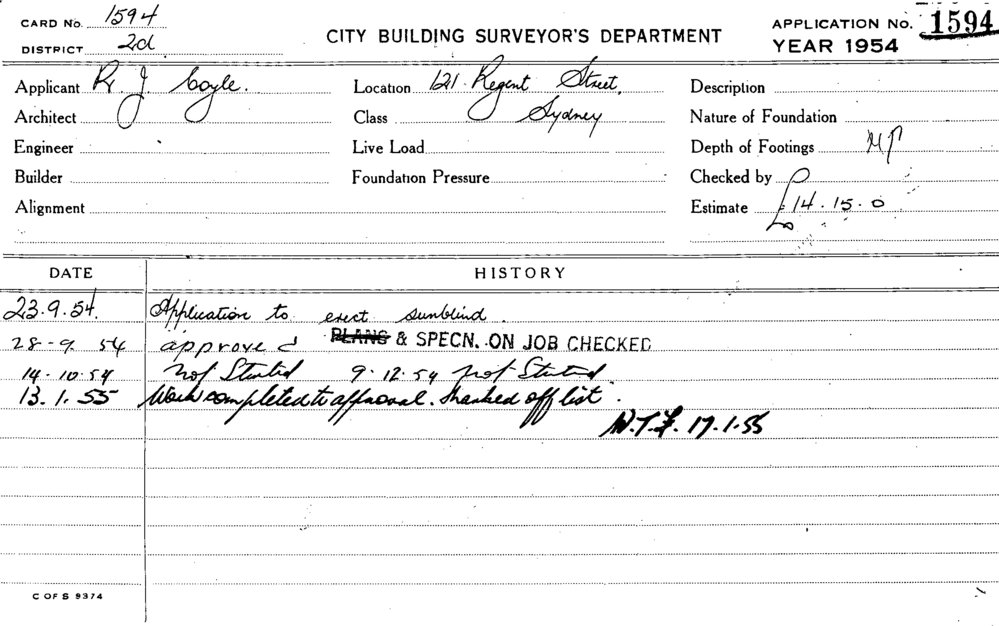 CARD No. 1594
DISTRICT 2d
CITY BUILDING SURVEYOR'S DEPARTMENT
APPLICATION No. 1594
YEAR 1954
Applicant R J Coyle. Location 121 Regent Street, Description
Architect Class Sydney Nature of Foundation
Engineer Live Load Depth of Footings
Builder Foundation Pressure Checked by
Alignment Estimate £14.15.0
DATE HISTORY
23.9.54. Application to erect sunblind.
28-9. 54 approved PLANS & SPECN. ON JOB CHECKED
14.10.54 Not Started 9.12.54 Not Started
13.1.55 Work completed to approval. Marked off list.
17.1.55
C OF S 9374